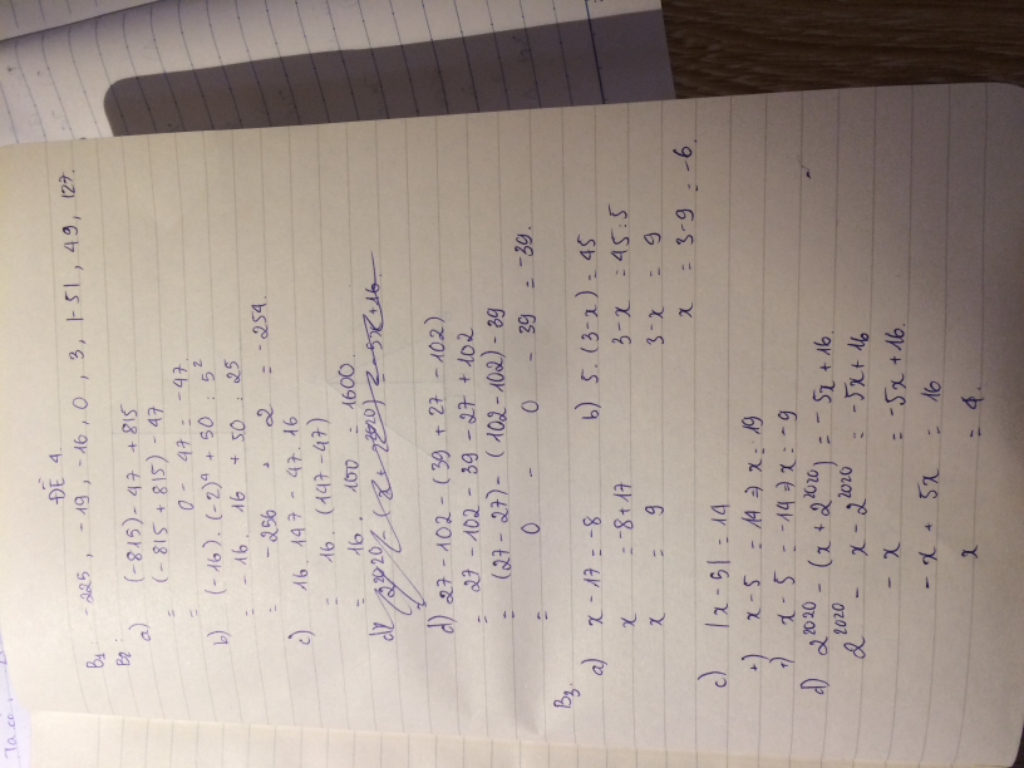 ĐỀ 4
B1: -225, -19, -16, 0, 3, |-5|, 49, 127.
B2:
a) (-815) - 47 + 815
= (-815 + 815) - 47
= 0 - 47 = -47
b) (-16).(-2)⁴ + 50 : 5²
= -16 . 16 + 50 : 25
= -256 + 2 = -254
c) 16.147 - 47.16
= 16.(147-47)
= 16. 100 = 1600
d) 27 - 102 - (39 + 27 - 102)
= 27 - 102 - 39 - 27 + 102
= (27 - 27) - (102 - 102) - 39
= 0 - 0 - 39 = -39.
B3.
a) x - 17 = -8
x = -8 + 17
x = 9
b) 5.(3-x) = 45
3-x = 45:5
3-x = 9
x = 3-9 = -6
c) |x - 5| = 14
+) x - 5 = 14 ⇒ x = 19
+) x - 5 = -14 ⇒ x = -9
d) 2²⁰²⁰ - (x + 2²⁰²⁰) = -5x + 16.
2²⁰²⁰ - x - 2²⁰²⁰ = -5x + 16
- x = -5x + 16.
- x + 5x = 16
x = 4.